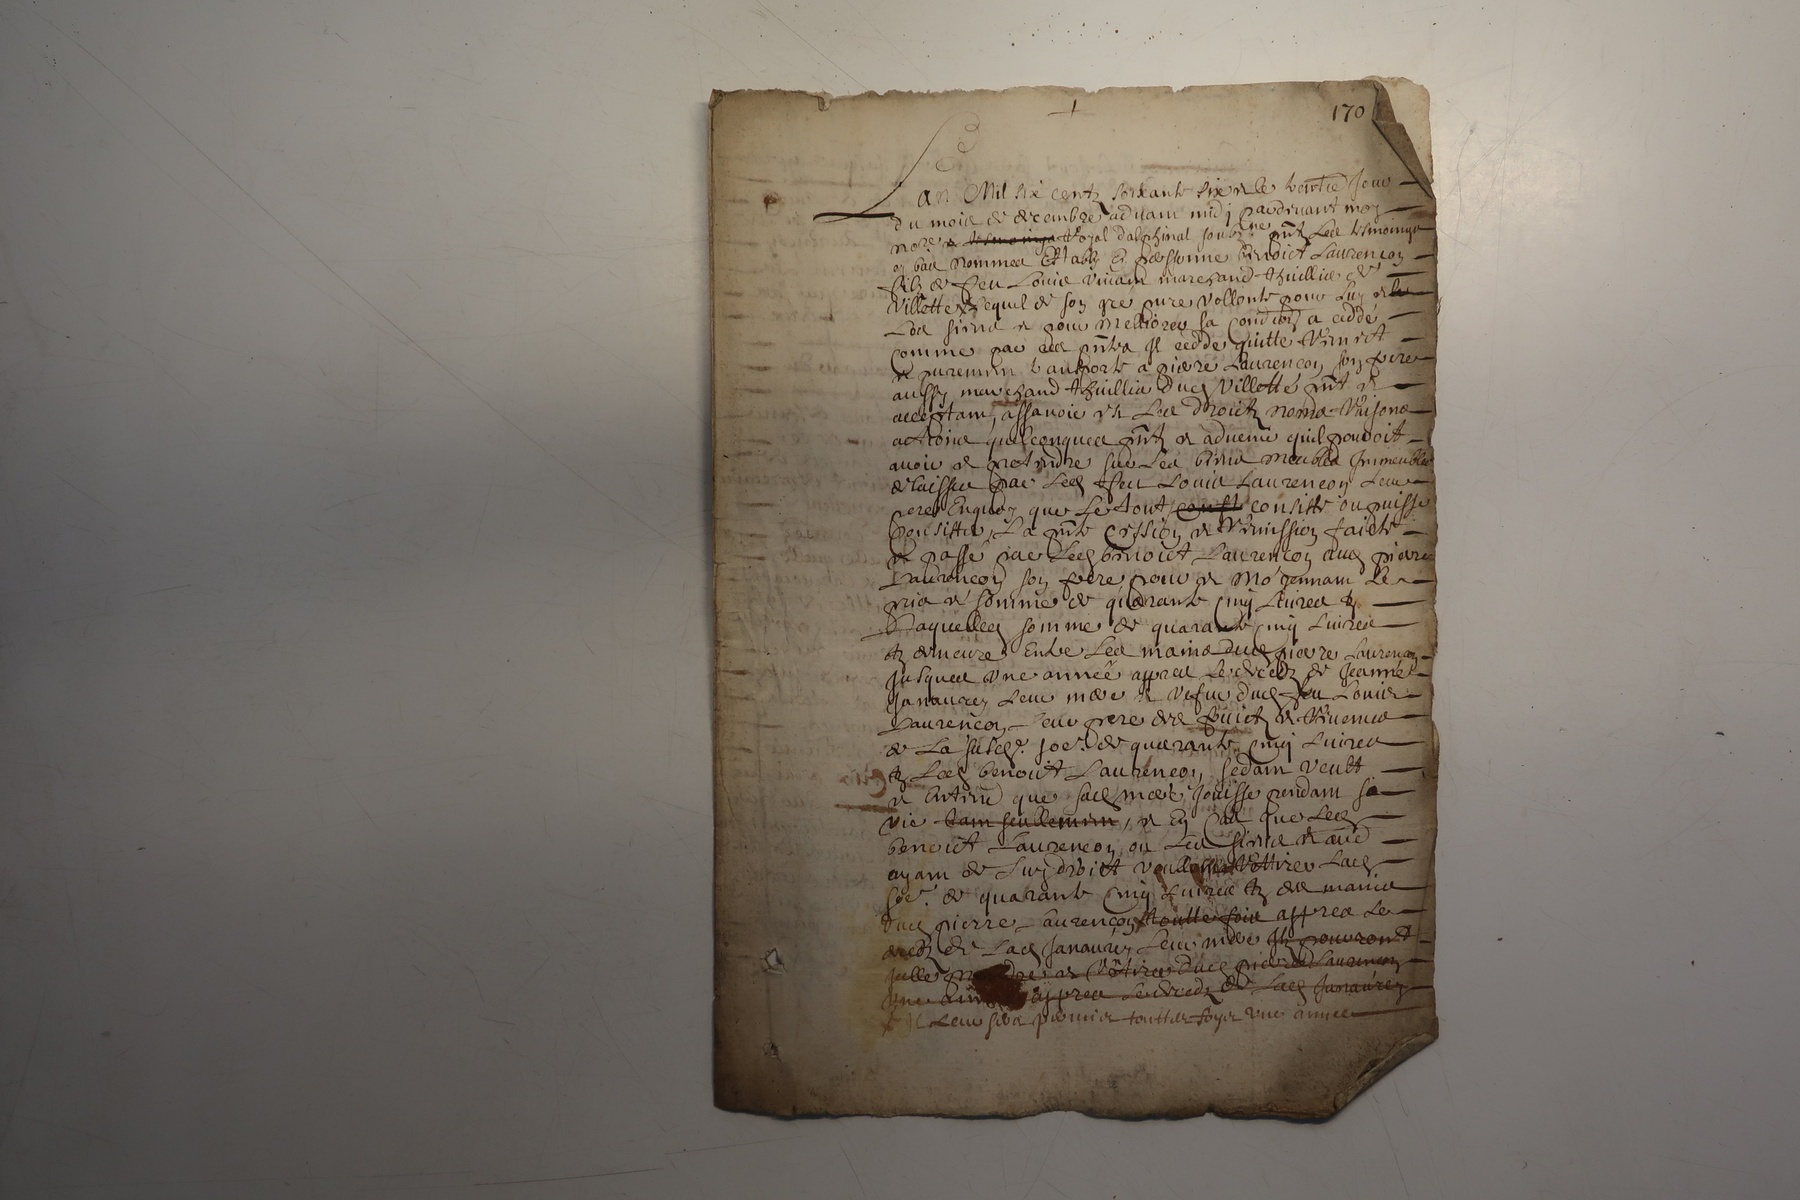 170
Lan Mil six centz soixante six & le trentie Jour
du mois de decembre advant midj pardevant moy
nore & tesmoings Royal dalphinal soubzne pnt Les tesmoings
en bas nommes Estably En personne benoict Laurencon
filz de feu Louis vivant marchand thuillier de
Villette Lequel de son gre pure vollonte pour Luy & le
Les siens & pour melliorer sa condion a cedde
comme par ces pntes Il cedde quitte Remect
& purement transporte a pierre Laurencon son frere
aussy marchand thuillier dud Villette pnt &
acceptant, assavoir Les droictz noms Raisons
actions quelconques pntz & advenir quil pouvoit
avoir & pretendre sur Les biens meubles Immeubles
delaisses par Led feu Louis Laurencon Leur
pere Enquoy que Le tout consiste ou puisse
Consister, La pnte cession & Remission faicte
& passe par Led benoict Laurencon aud pierre
Laurencon son frere pour & moyennant Le
pris & somme de quarante cinq Livres tz
Laquelle somme de quarante cinq Livres
tz demeure Entre Les mains dud pierre Laurencon
Jusques une annee appres Le decedz de Jeanne
Janaurey Leur mere & vefve dud feu Louis
Laurencon Leur pere des fruictz & Revenus
de La susd. soe. de quarante cinq Livres
tz Led benoict Laurencon, cedant veult
& Entend que sad mere Jouisse pendant sa
vie tant seullement, & En Cas que Led
benoict Laurencon ou Les siens & aud
ayant de Luy droict voullussent Rettirer Lad
soe. de quarante cinq Livres tz des mains
dud pierre Laurencon touttes fois appres Le
decedz de Lad Janaurey Leur mere Ilz pourront
Icelle & Rettirer dud pierre Laurencon
une appres Le decedz de Lad Janaurey
Il Leur sera permis touttes foys une annee